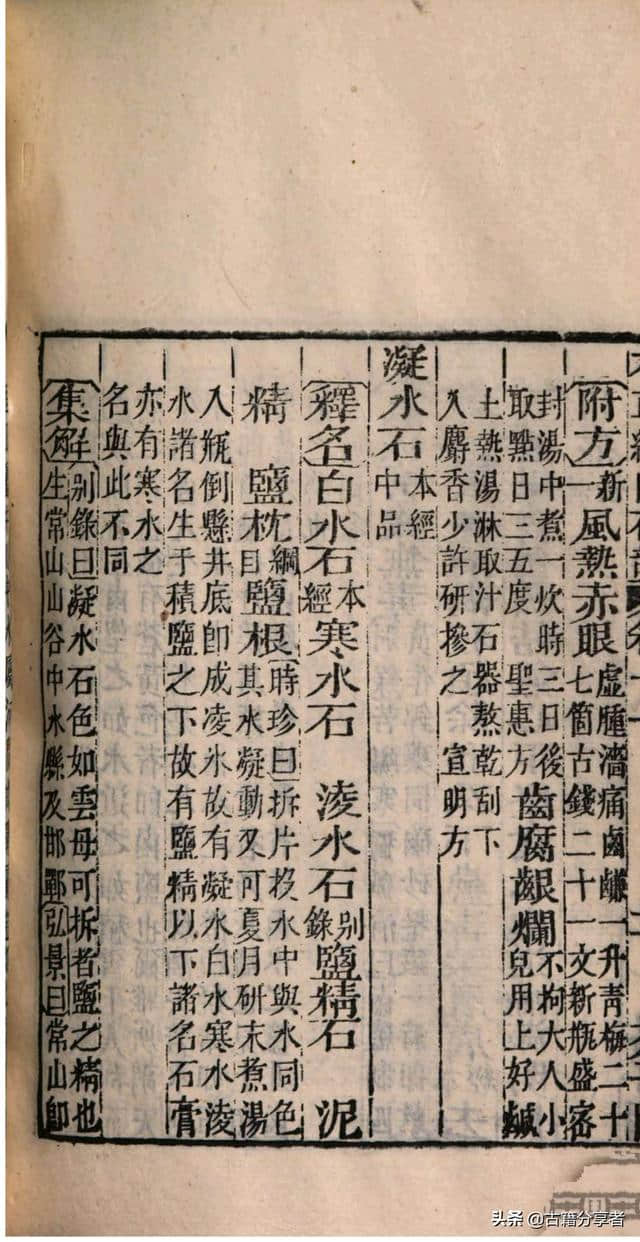 附方新一風熱赤眼虛腫濇痛鹵鹻一升青梅二十七箇古錢二十一文新瓶盛密
封湯中煮一炊時三日後取點日三五度 聖惠方 齒腐齦爛不拘大人小兒用上好鹻
土熱湯淋取汁石器熬乾刮下入麝香少許研摻之 宣明方
凝水石本經中品
釋名白水石本經寒水石 淩水石别錄鹽精石 泥
精 鹽枕綱目鹽根時珍曰拆片投水中與水同色其水凝動又可夏月研末煮湯
入瓶倒懸井底卽成凌氷故有凝水白水寒水淩水諸名生于積鹽之下故有鹽精以下諸名石膏
亦有寒水之名與此不同
集解别錄曰凝水石色如雲母可拆者鹽之精也生常山山谷中水縣及邯鄲弘景曰常山卽
头条 @古籍分享者